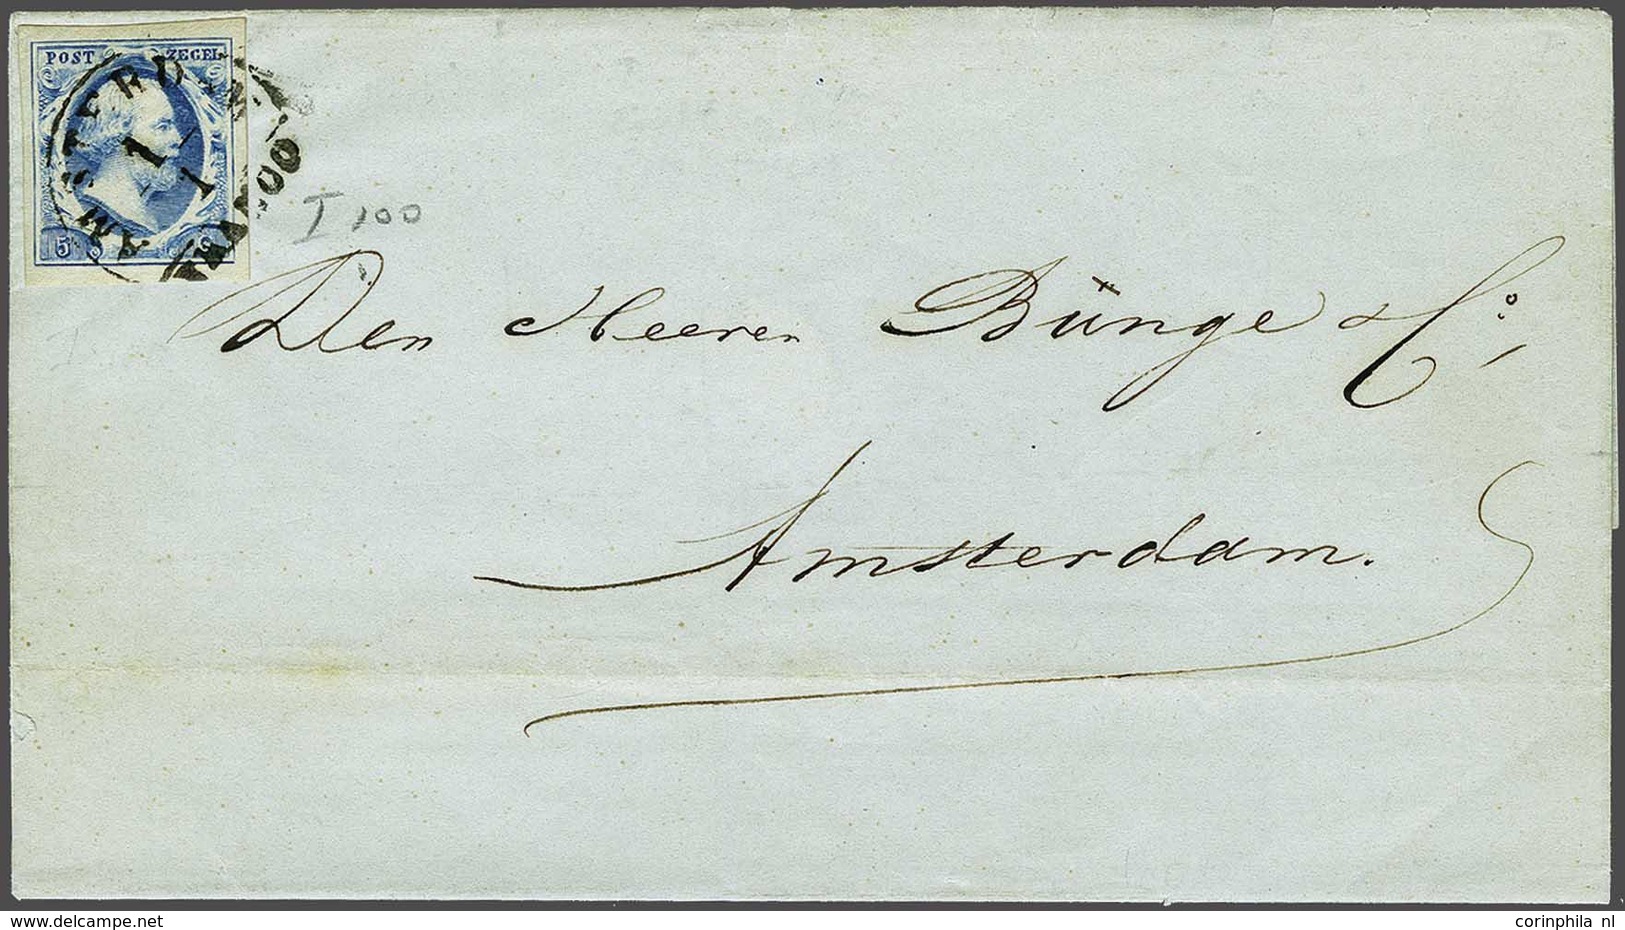 POST ZEGEL
AMSTERDAM
1
1
5 C
I 100
Den Heeren Bünge & Co,
Amsterdam.
delcampe.net
corinphila nl